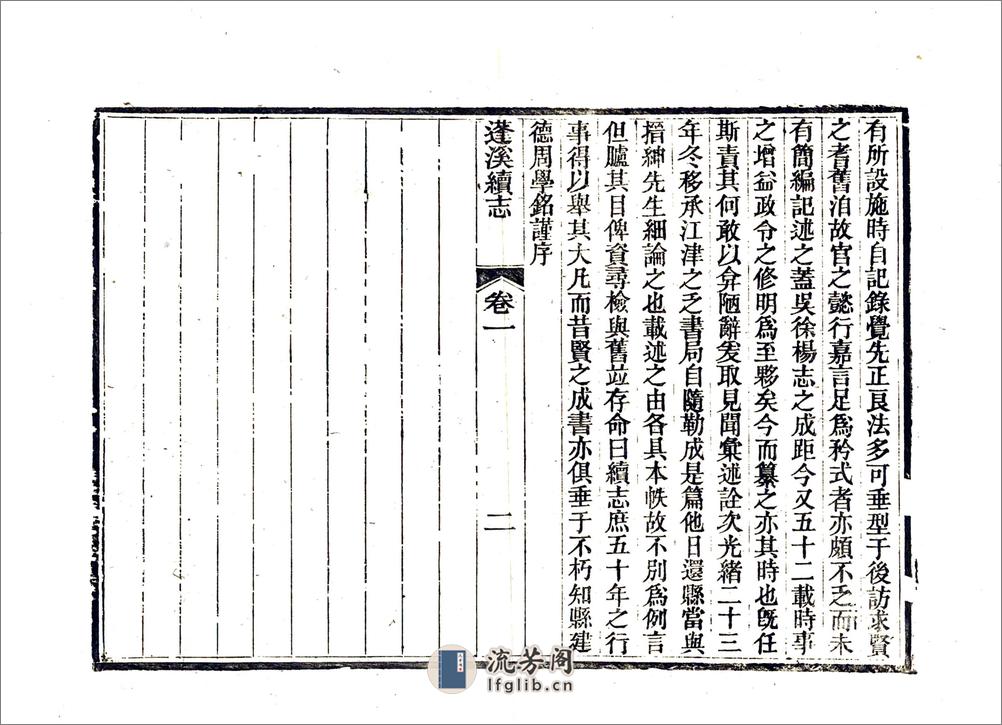 有所設施時自記錄覺先正良法多可垂型于後訪求賢
之耆舊洎故官之懿行嘉言足爲矜式者亦頗不乏而未
有簡編記述之蓋吳徐楊志之成距今又五十二載時事
之增益政令之修明爲至夥矣今而纂之亦其時也旣任
斯責其何敢以弇陋辭爰取見聞彙述詮次光緒二十三
年冬移承江津之乏書局自隨勒成是篇他日還縣當與
搢紳先生細論之也載述之由各具本帙故不別爲例言
但臚其目俾資尋檢與舊竝存命曰續志庶五十年之行
事得以舉其大凡而昔賢之成書亦俱垂于不朽知縣建
德周學銘謹序
蓬溪續志
卷一
二
流芳阁
lfglib.cn